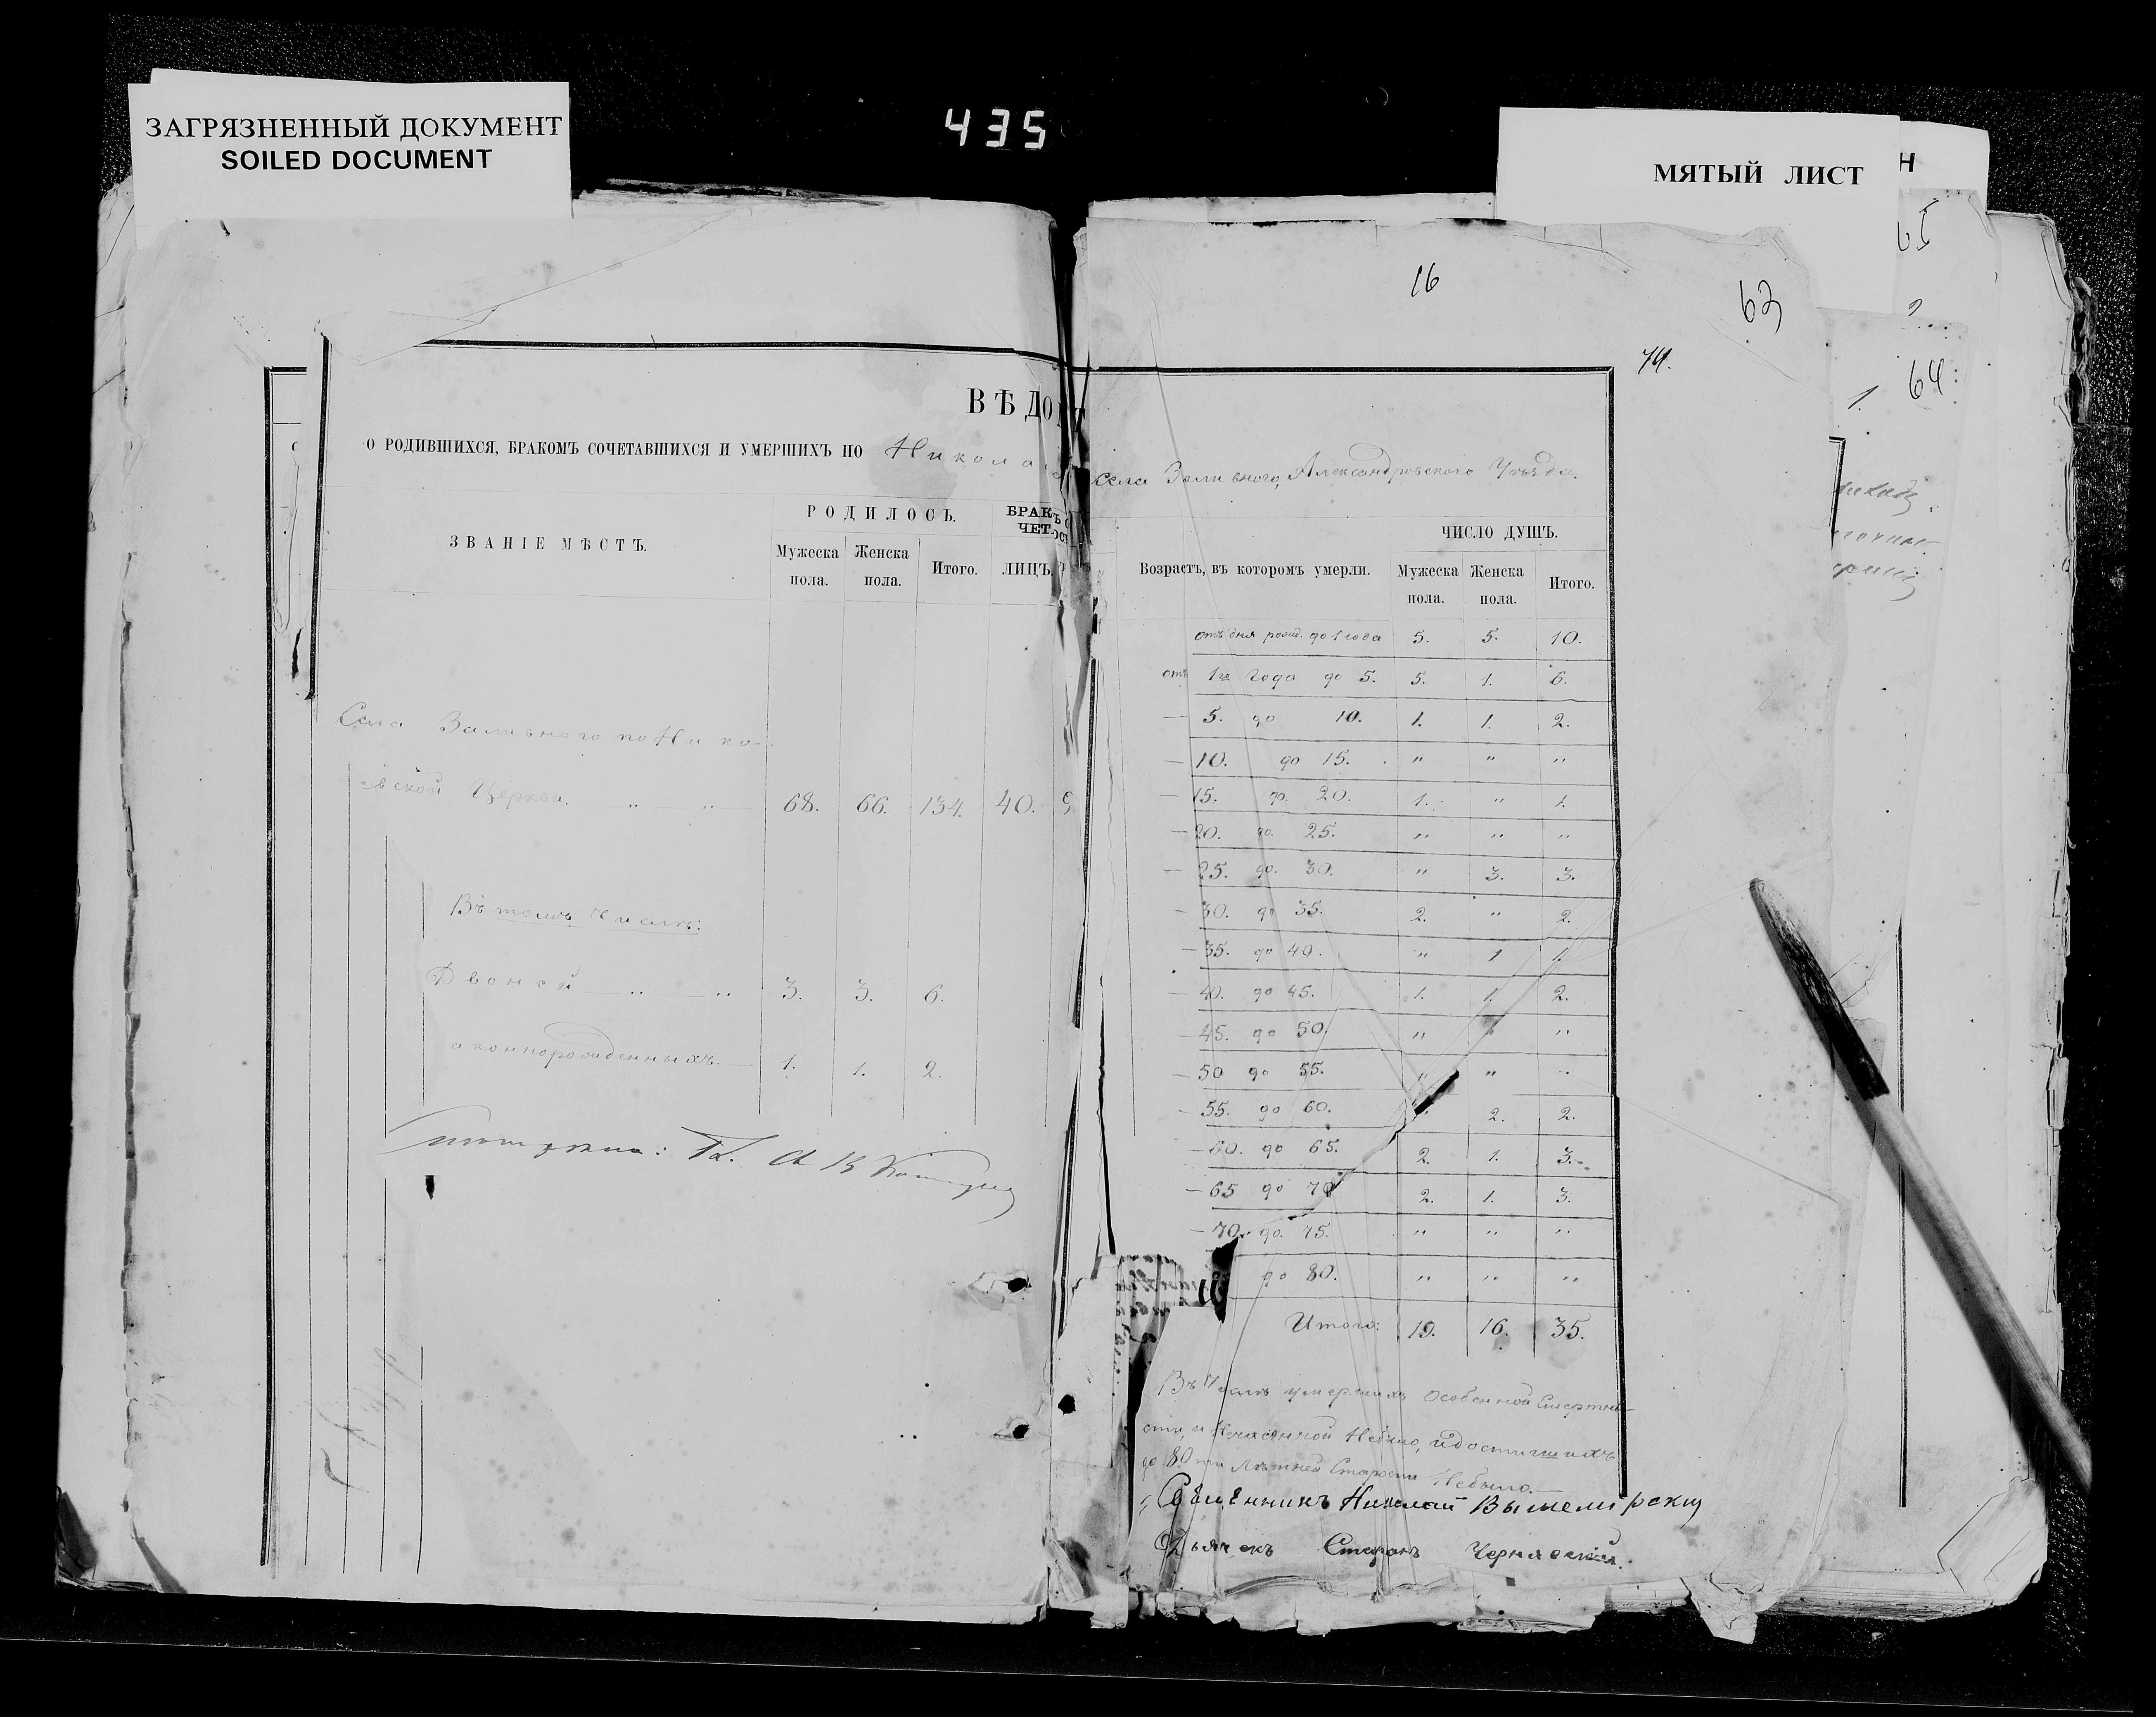 435
ЗАГРЯЗНЕННЫЙ ДОКУМЕНТ
SOILED DOCUMENT
МЯТЫЙ ЛИСТ
Н
65
64
1.
16
63
74.
ВѢДО
О РОДИВШИХСЯ, БРАКОМЪ СОЧЕТАВШИХСЯ И УМЕРШИХЪ ПО Никола
ЗВАНІЕ МѢСТЪ.
РОДИЛОСЬ.
БРАК
ЧЕТ
Мужеска пола. Женска пола. Итого. ЛИЦЪ.
Села Заливного по Нико-
ской Церкви. „ „ 68. 66. 134. 40.
Въ томъ числѣ:
Двоней „ „ 3. 3. 6.
аконнорожденныхъ. 1. 1. 2.
села Заливного, Александровского Уѣзда.
ЧИСЛО ДУШЪ.
Возрастъ, въ которомъ умерли. Мужеска пола. Женска пола. Итого.
отъ дня рожд. до 1 года 5. 5. 10.
отъ 1го года до 5. 5. 1. 6.
— 5. до 10. 1. 1. 2.
— 10. до 15. „ „ „
— 15. до 20. 1. „ 1.
— 20. до 25. „ „ „
— 25. до 30. „ 3. 3.
— 30. до 35. 2. „ 2.
— 35. до 40. „ 1 1.
— 40. до 45. 1. 1. 2.
— 45. до 50. „ „ „
— 50 до 55. „ „ „
— 55. до 60. „ 2. 2.
— 60. до 65. 2. 1. 3.
— 65 до 70 2. 1. 3.
— 70. до 75. „ „ „
до 80. „ „ „
Итого: 19. 16. 35.
Въ числѣ умершихъ особенной Смертно-
сти, и Нечаянной Небыло, и достигшихъ
до 80 ти Лѣтней Старости Небыло.—
Священникъ Николай Вышемірскій
Дьячекъ Стефанъ Чернявский.